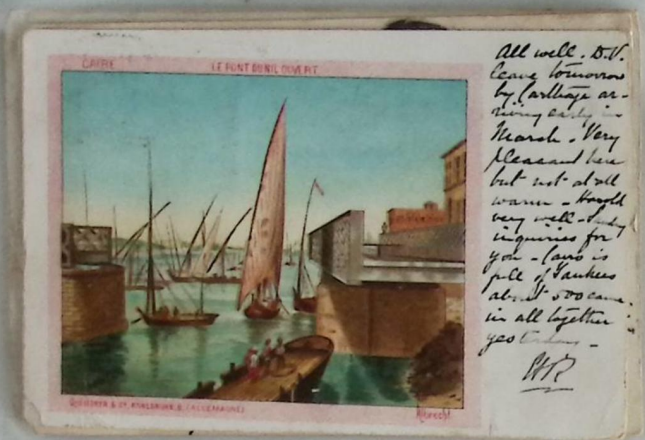 CAIRE
LE PONT DU NIL OUVERT
All well. D.V.
leave tomorrow
by Carthage ar-
riving early in
March. Very
pleasant here
but not at all
warm -
very well -
inquiries for
you - Cairo is
full of Yankees
about 500 came
in all together
yesterday -
Albrecht